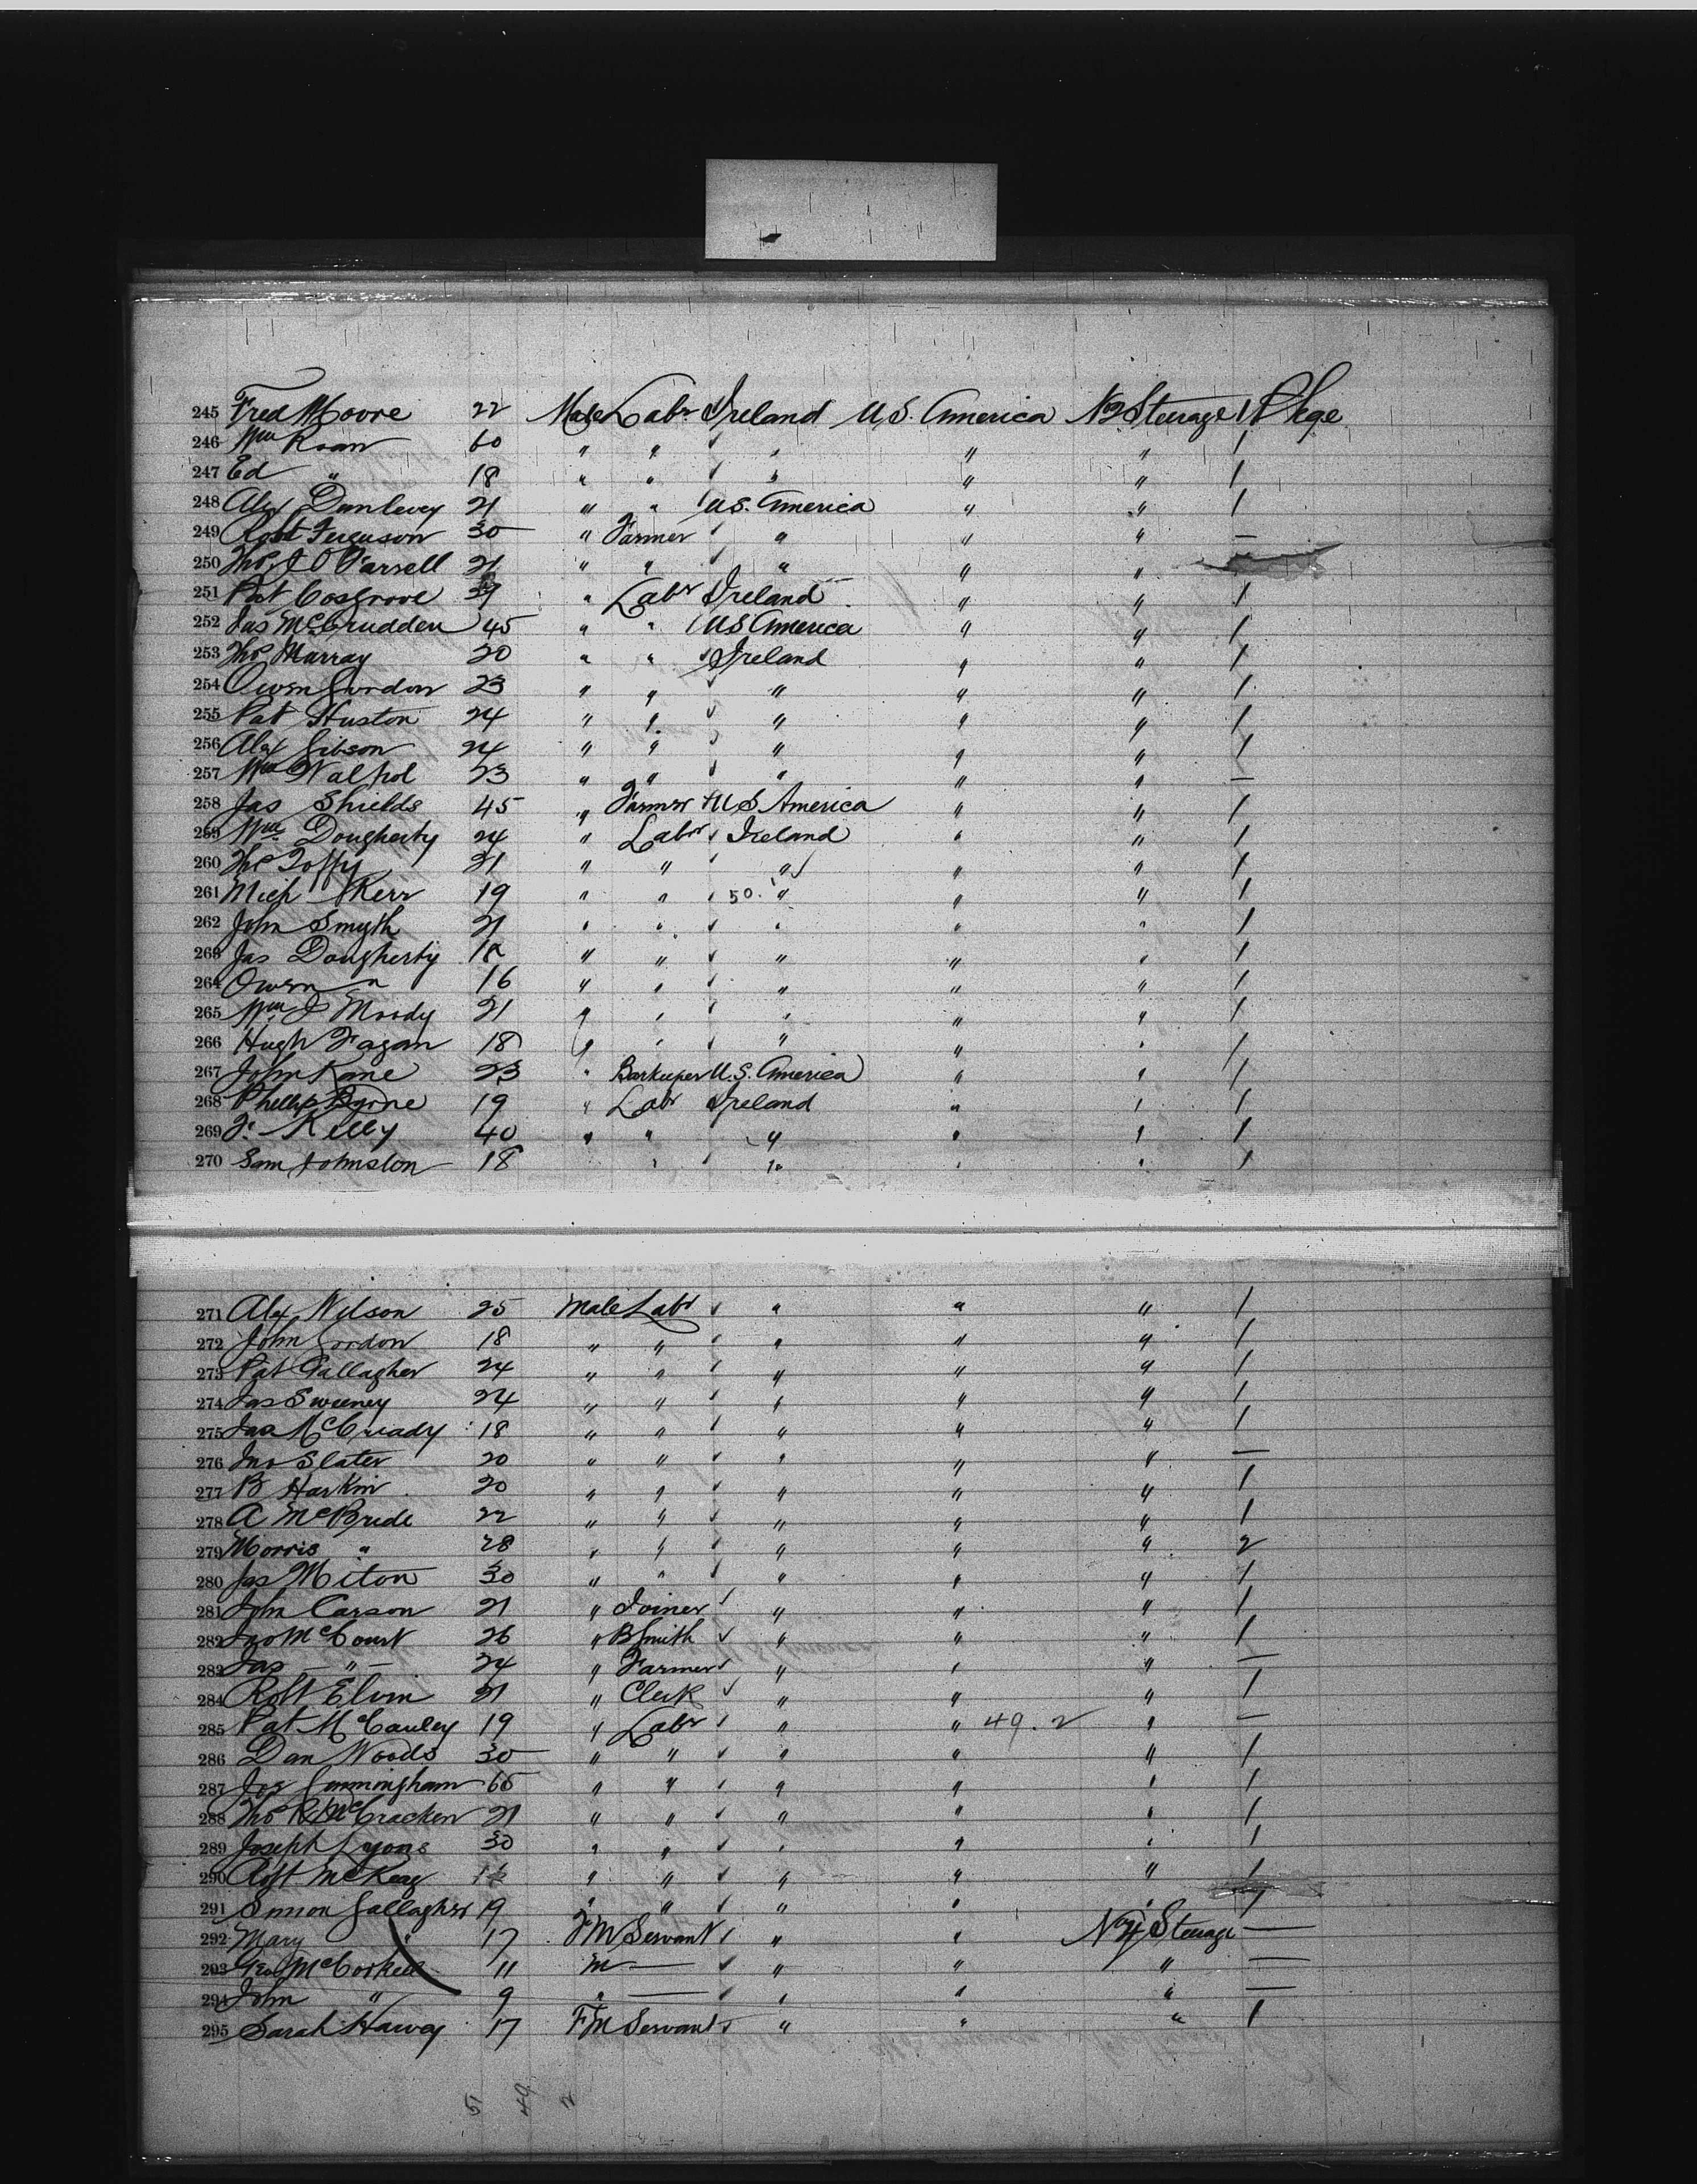 245 Fred Moore 22 Male Labr Ireland U.S. America No 2 Steerage 1 Pkge
246 Wm Roan 60 " " " " " 1
247 Ed " 18 " " " " " 1
248 Alex Dunlevey 21 " " U.S. America " " 1
249 Robt Ferguson 30 " Farmer " " " —
250 Thos J O'Farrell 21 " " " " "
251 Pat Cosgrove " Labr Ireland " " 1
252 Jas McCrudden 45 " " U S America " " 1
253 Thos Murray 20 " " Ireland " " 1
254 Owen Gordon 23 " " " " " 1
255 Pat Huston 24 " " " " " 1
256 Alex Gibson 24 " " " " " 1
257 Wm Walpol 23 " " " " " —
258 Jas Shields 45 " Farmer U S America " " 1
259 Wm Dougherty 24 " Labr Ireland " " 1
260 Thos 21 " " " " " 1
261 Mich Kerr 19 " " 50. " " " 1
262 John Smyth 21 " " " " " 1
263 Jas Dougherty 18 " " " " " 1
264 Owen " 16 " " " " " 1
265 Wm J Moody 21 " " " " " 1
266 Hugh Fagan 18 " " " " " 1
267 John Kane 23 " Barkeeper U.S. America " " 1
268 Phellip Byrne 19 " Labr Ireland " " 1
269 F. Kelly 40 " " " " " 1
270 Sam Johnston 18 " " " " 1
271 Alex Wilson 25 Male Labr " " " 1
272 John Gordon 18 " " " " " 1
273 Pat Gallagher 24 " " " " " 1
274 Jas Sweeney 24 " " " " " 1
275 Jas McCready 18 " " " " " 1
276 Jno Slater 20 " " " " " —
277 B Harkin 20 " " " " " 1
278 A McBride 22 " " " " " 1
279 Morris " 28 " " " " " 2
280 Jas Miton 30 " " " " " 1
281 John Carson 21 " Joiner " " " 1
282 Jno McCourt 26 " B Smith " " " 1
283 Jas — " — 24 " Farmer " " " —
284 Robt Elvin 21 " Clerk " " " 1
285 Pat McCauley 19 " Labr " " 49.2 " —
286 Dan Woods 30 " " " " " 1
287 Cunningham 65 " " " " " 1
288 Thos McCracken 21 " " " " " 1
289 Joseph Lyons 30 " " " " " 1
290 Robt McKeag " " " " " 1
291 Simon Gallagher 19 " " " " " 1
292 Mary " 17 F M Servant " " No 4 Steerage —
293 Geo McCorkell 11 M — " " " —
294 John " 9 " — " " " —
295 Sarah Harvey 17 F M Servant " " " 1
51 49 2